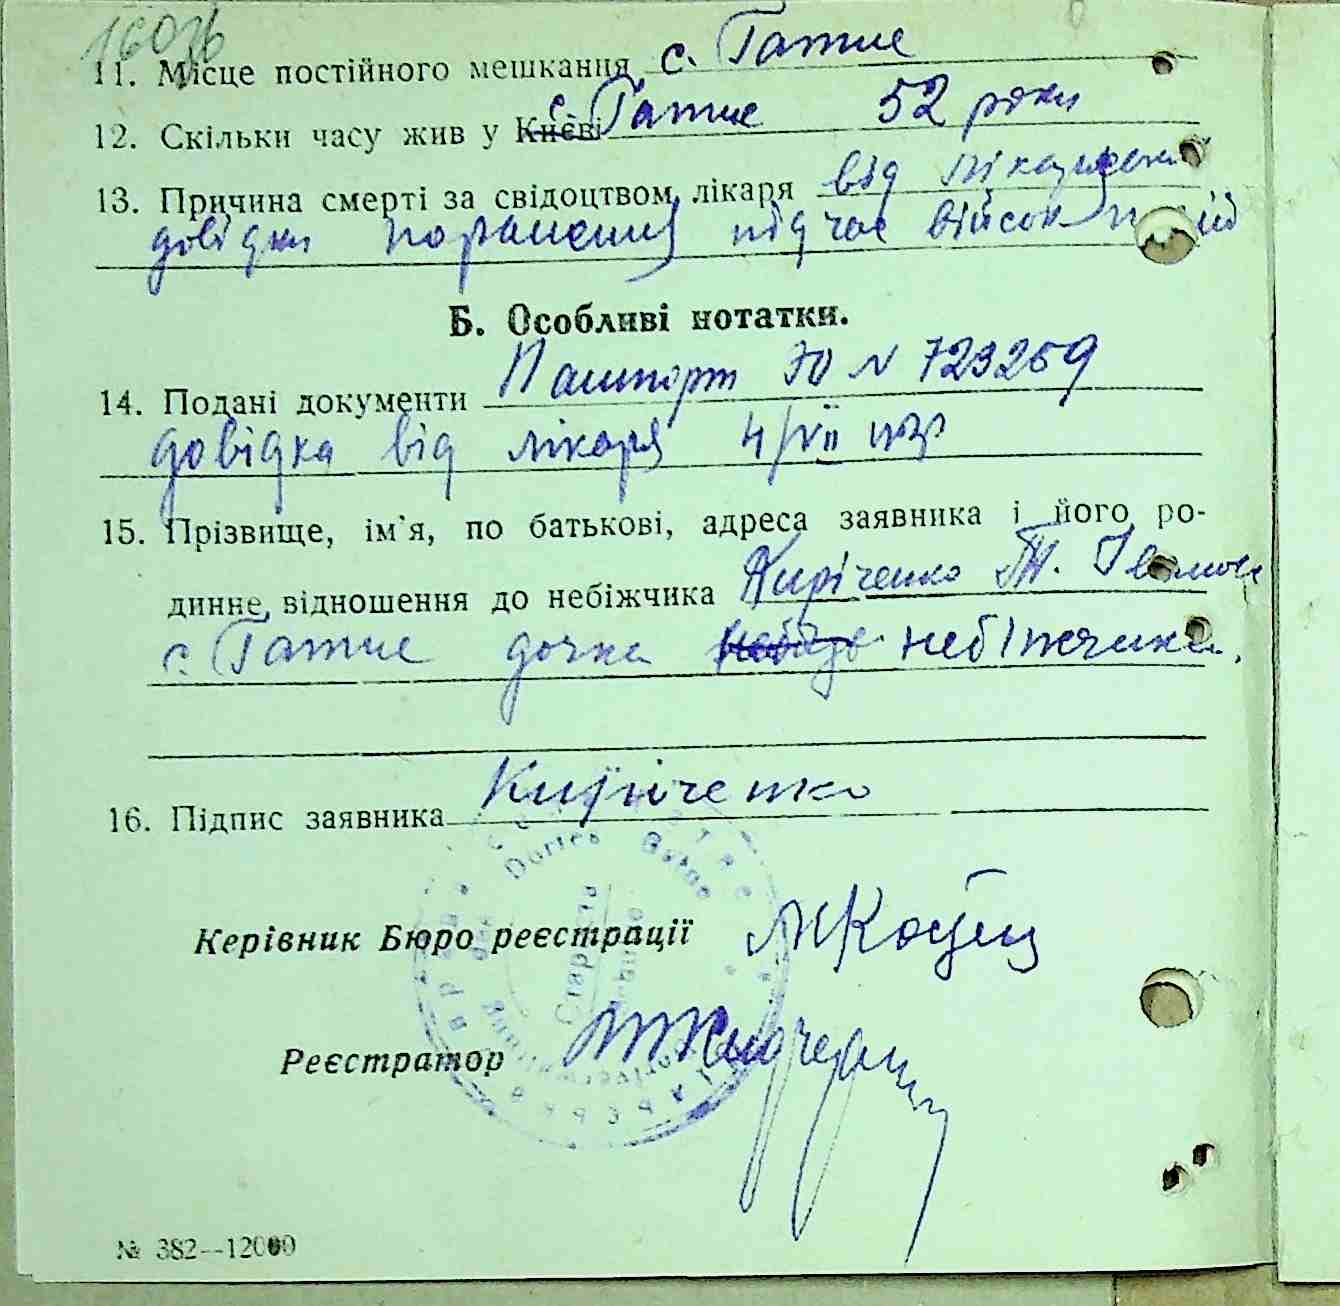 11. Місце постійного мешкання с. Гатне
12. Скільки часу жив у Києві с. Гатне 52 роки
13. Причина смерті за свідоцтвом лікаря від
довідки поранения під час військ
Б. Особливі нотатки.
14. Подані документи Пашпорт № 723259
довідка від лікаря 4/VII
15. Прізвище, ім'я, по батькові, адреса заявника і його ро-
динне, відношення до небіжчика Киріченко Т.
с. Гатне дочка небіжчика.
16. Підпис заявника Киріченко
Керівник Бюро реєстрації
Реєстратор
Староста
№ 382—12000